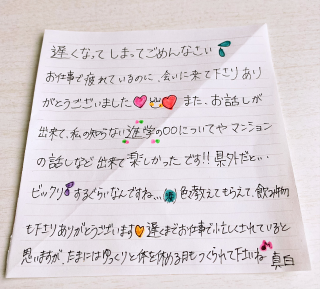 遅くなってしまってごめんなさい
お仕事で疲れているのに、会いに来て下さりあり
がとうございました また、お話しが
出来て、私の知らない進学の〇〇についてや マンション
の話しなど 出来て楽しかったです!! 県外だと…
ビックリするぐらいなんですね、 色々教えてもらえて、飲み物
も下さりありがとうございます 遅くまでお仕事で忙しくされていると
思いますが、たまにはゆっくりと体を休める日もつくられて下さいね 真白